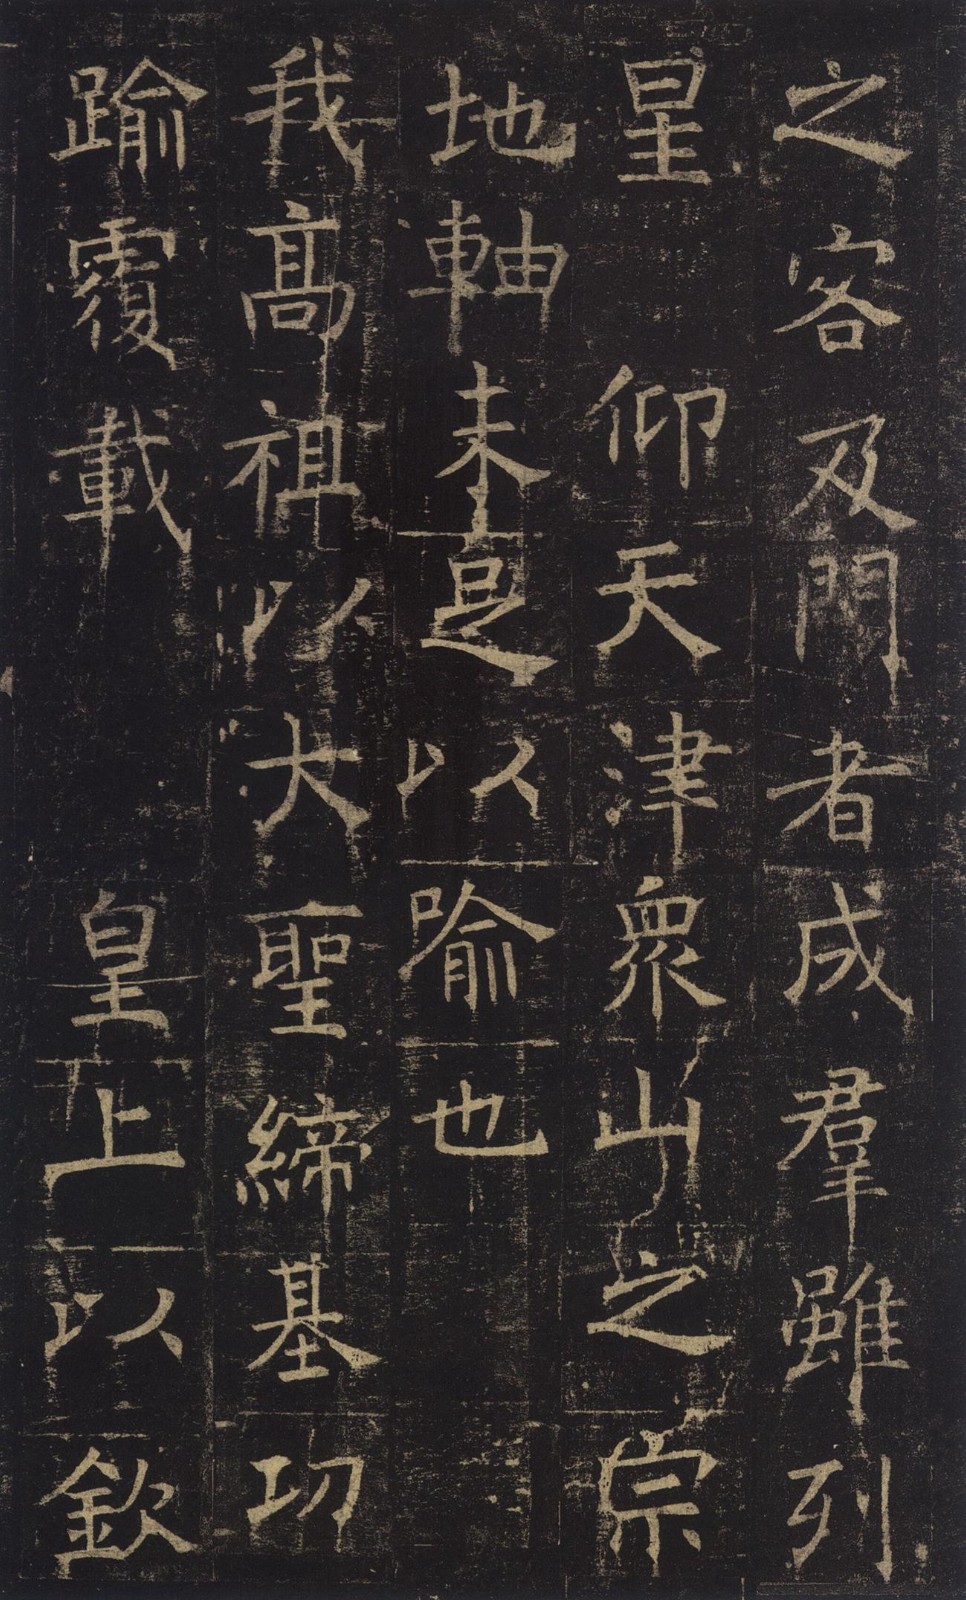 之客及門者成羣雖列
星仰天津衆山之宗
地軸未足以喻也
我髙祖以大聖締基功
踰覆載皇上以欽